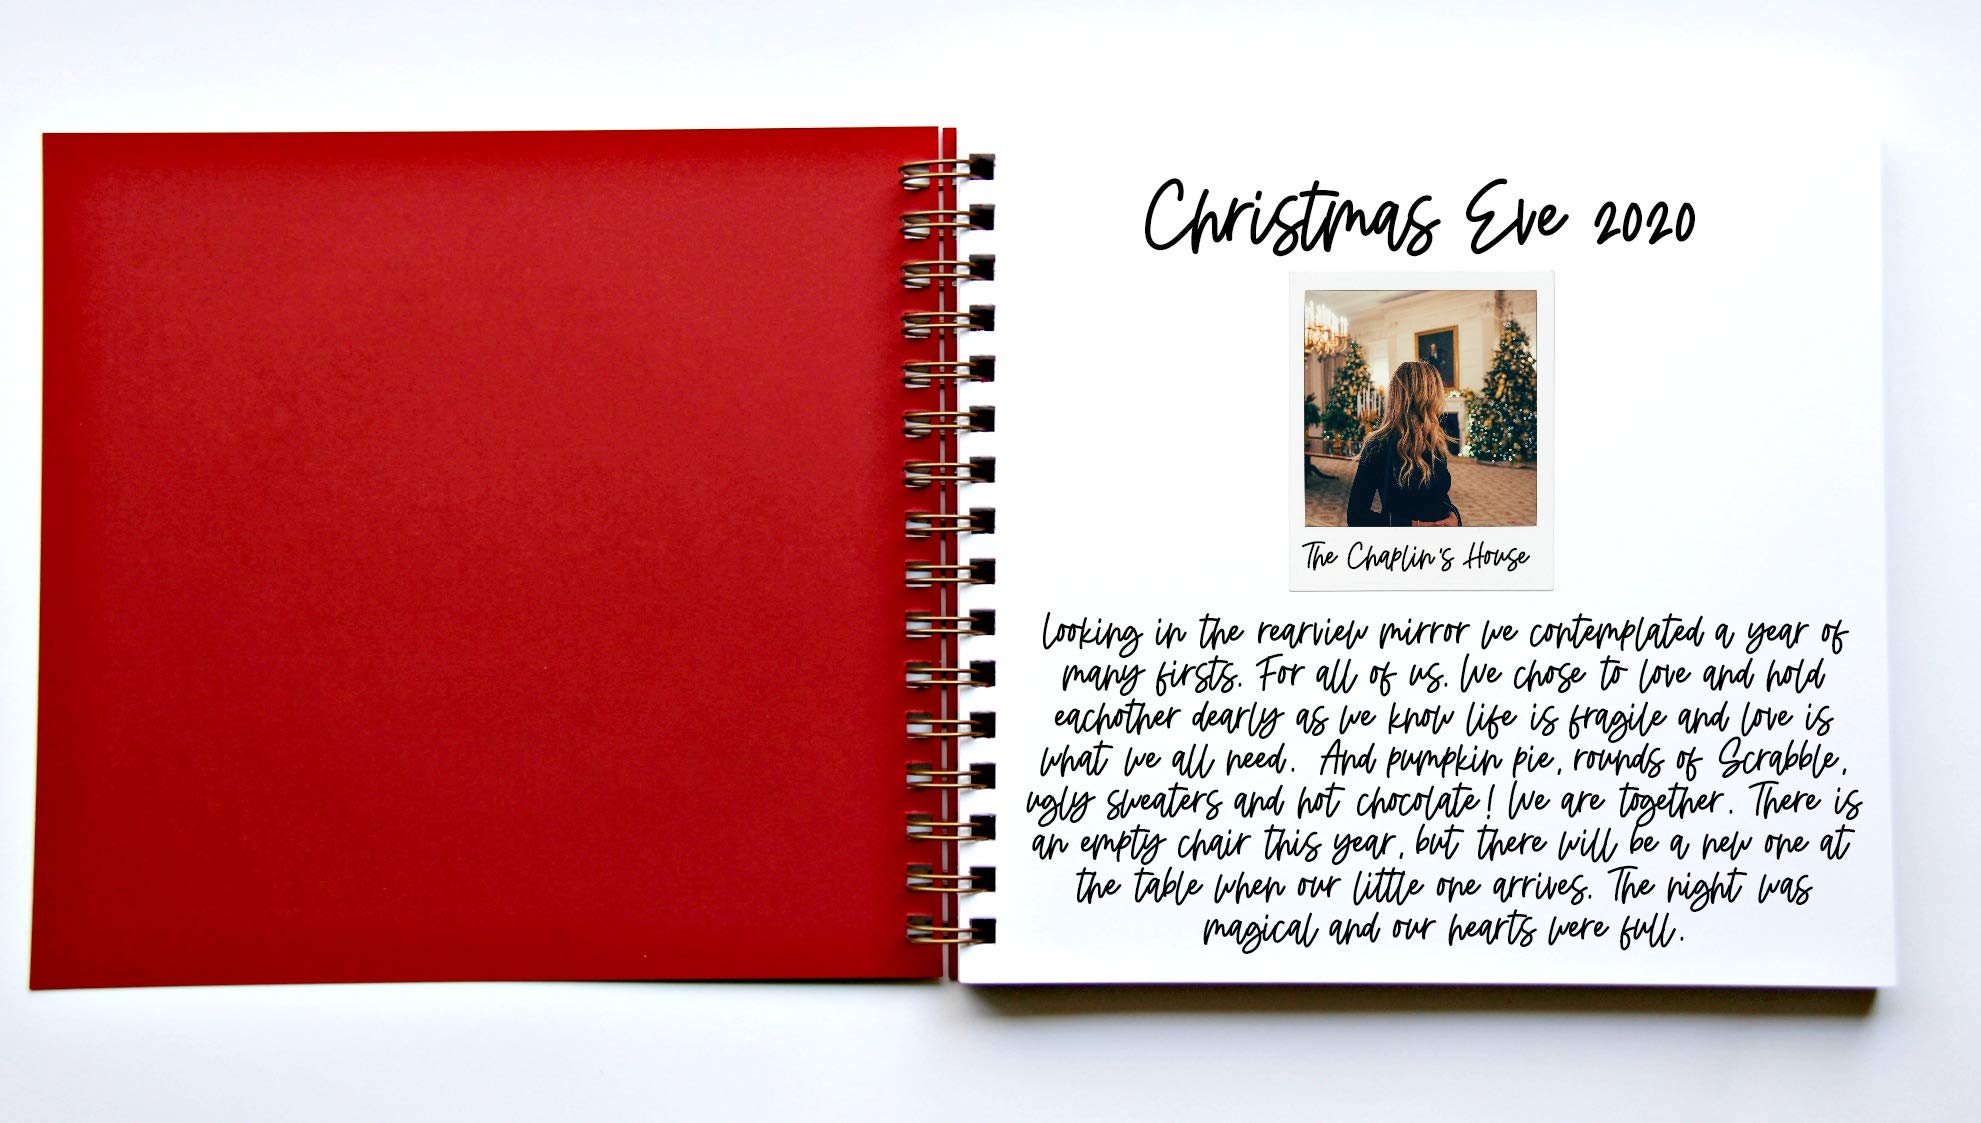 Christmas Eve 2020
The Chaplin's House
Looking in the rearview mirror we contemplated a year of
many firsts. For all of us. We chose to love and hold
eachother dearly as we know life is fragile and love is
what we all need. And pumpkin pie, rounds of Scrabble,
ugly sweaters and hot chocolate! We are together. There is
an empty chair this year, but there will be a new one at
the table when our little one arrives. The night was
magical and our hearts were full.